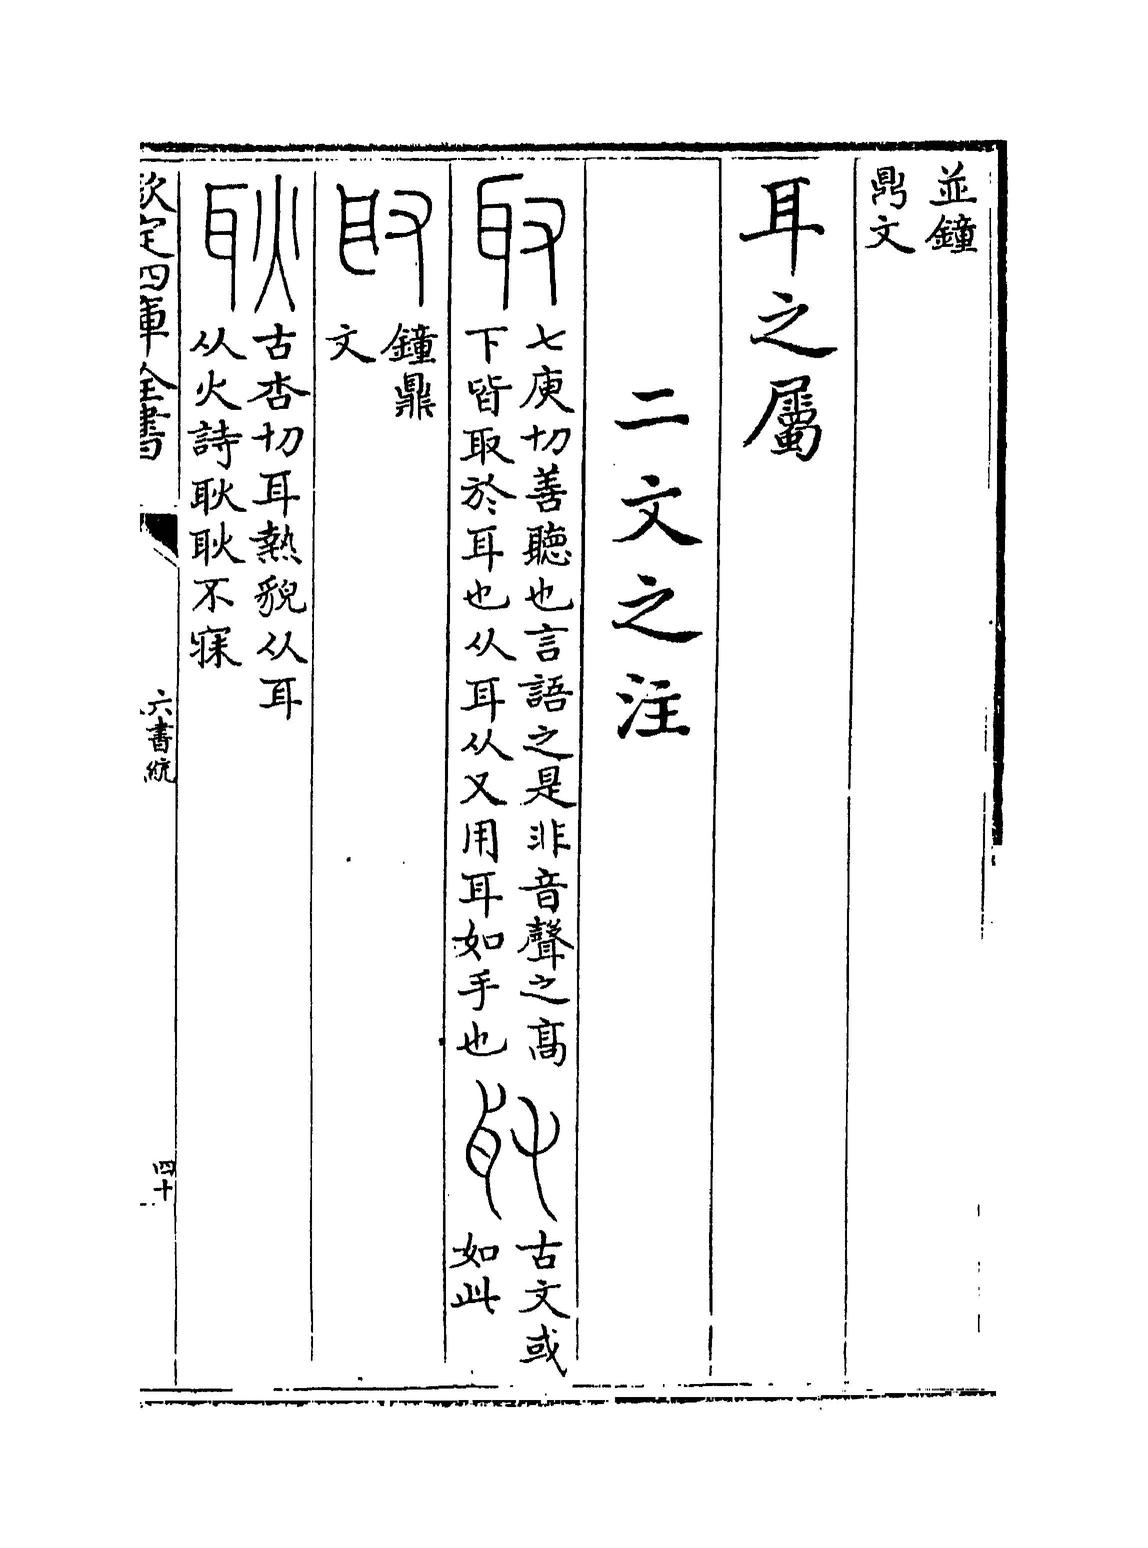 並鐘
鼎文
耳之屬
二文之注
取
七庾切善聽也言語之是非音聲之高
下皆取於耳也从耳从又用耳如手也
古文或
如此
鐘鼎
文
耿
古杏切耳熱貌从耳
从火詩耿耿不寐
欽定四庫全書
六書統
四十